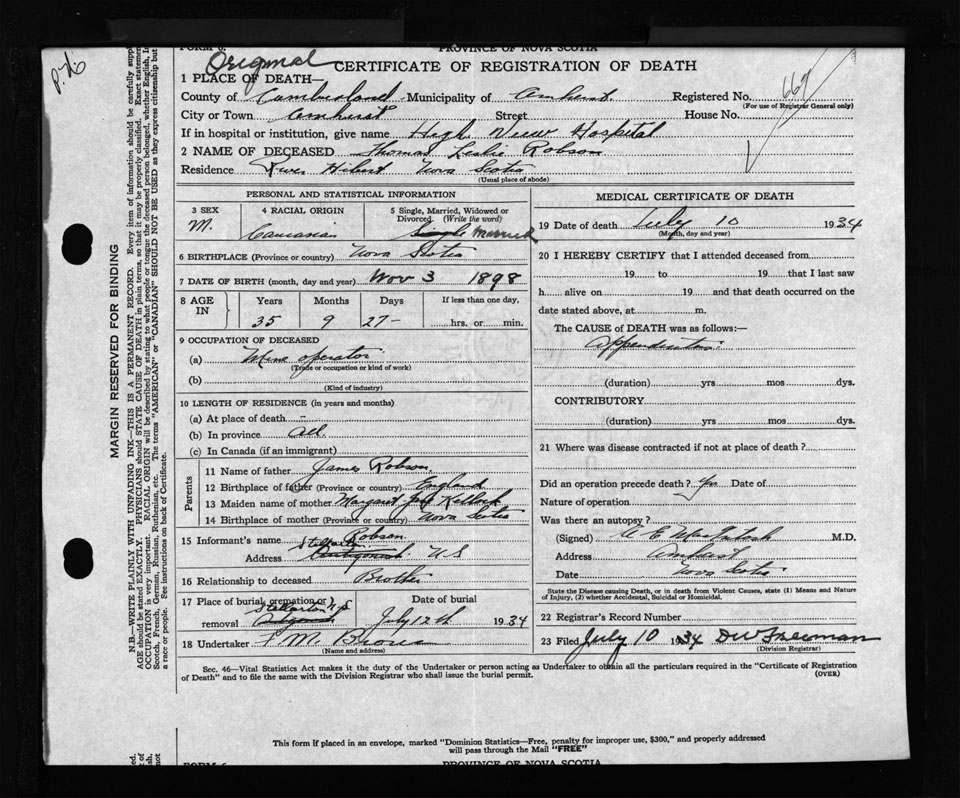 FORM 6.
PROVINCE OF NOVA SCOTIA
Original
CERTIFICATE OF REGISTRATION OF DEATH
1 PLACE OF DEATH—
County of Cumberland Municipality of Amherst Registered No. 667
(For use of Registrar General only)
City or Town Amherst Street House No.
If in hospital or institution, give name High View Hospital
2 NAME OF DECEASED Thomas Leslie Robson
Residence River Hibert Nova Scotia
(Usual place of abode)
PERSONAL AND STATISTICAL INFORMATION
3 SEX 4 RACIAL ORIGIN 5 Single, Married, Widowed or Divorced. (Write the word)
M. Caucasian Single Married
6 BIRTHPLACE (Province or country) Nova Scotia
7 DATE OF BIRTH (month, day and year) Nov 3 1898
8 AGE IN Years Months Days If less than one day,
35 9 27- hrs. or min.
9 OCCUPATION OF DECEASED
(a) Mine operator
(Trade or occupation or kind of work)
(b)
(Kind of industry)
10 LENGTH OF RESIDENCE (in years and months)
(a) At place of death –
(b) In province all
(c) In Canada (if an immigrant)
Parents
11 Name of father James Robson
12 Birthplace of father (Province or country) England
13 Maiden name of mother Margaret Kellock
14 Birthplace of mother (Province or country) Nova Scotia
15 Informant's name Robson
Address Stellarton Antigonish N S
16 Relationship to deceased Brother
17 Place of burial, cremation or removal Stellarton N.S Date of burial July 12th 1934
18 Undertaker F. M. Brown
(Name and address)
MEDICAL CERTIFICATE OF DEATH
19 Date of death July 10 1934
(Month, day and year)
20 I HEREBY CERTIFY that I attended deceased from
19 to 19 that I last saw
h alive on 19 and that death occurred on the
date stated above, at m.
The CAUSE of DEATH was as follows:—
Appendicitis
(duration) yrs mos dys.
CONTRIBUTORY
(duration) yrs mos dys.
21 Where was disease contracted if not at place of death?
Did an operation precede death? Yes Date of
Nature of operation
Was there an autopsy?
(Signed) C E MacIntosh M.D.
Address Amherst
Date Nova Scotia
State the Disease causing Death, or in death from Violent Causes, state (1) Means and Nature of Injury, (2) whether Accidental, Suicidal or Homicidal.
22 Registrar's Record Number
23 Filed July 10 1934 DW Freeman
(Division Registrar)
Sec. 46—Vital Statistics Act makes it the duty of the Undertaker or person acting as Undertaker to obtain all the particulars required in the "Certificate of Registration
of Death" and to file the same with the Division Registrar who shall issue the burial permit.
(OVER)
This form if placed in an envelope, marked "Dominion Statistics—Free, penalty for improper use, $300," and properly addressed
will pass through the Mail "FREE"
FORM 6.
PROVINCE OF NOVA SCOTIA
MARGIN RESERVED FOR BINDING
N.B.—WRITE PLAINLY WITH UNFADING INK—THIS IS A PERMANENT RECORD. Every item of information should be carefully supp
AGE should be stated EXACTLY. PHYSICIANS should STATE CAUSE OF DEATH in plain terms, so that it may be properly classified. Exact statement
OCCUPATION is very important. RACIAL ORIGIN will be described by stating to what people or tongue the deceased person belonged, whether English, I
Scotch, French, German, Russian, Ruthenian, etc. The terms "AMERICAN" or "CANADIAN" SHOULD NOT BE USED as they express citizenship but
a race or people. See instructions on back of Certificate.